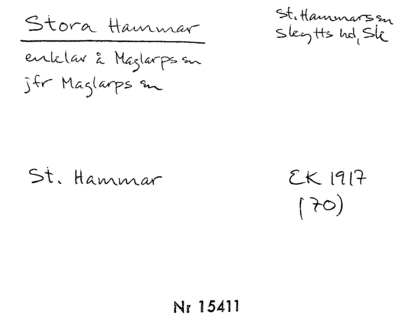 Stora Hammar
St. Hammars sn
Skytts hd, Sk
enklav å Maglarps sn
jfr Maglarps sn
St. Hammar
EK 1917
(70)
Nr 15411